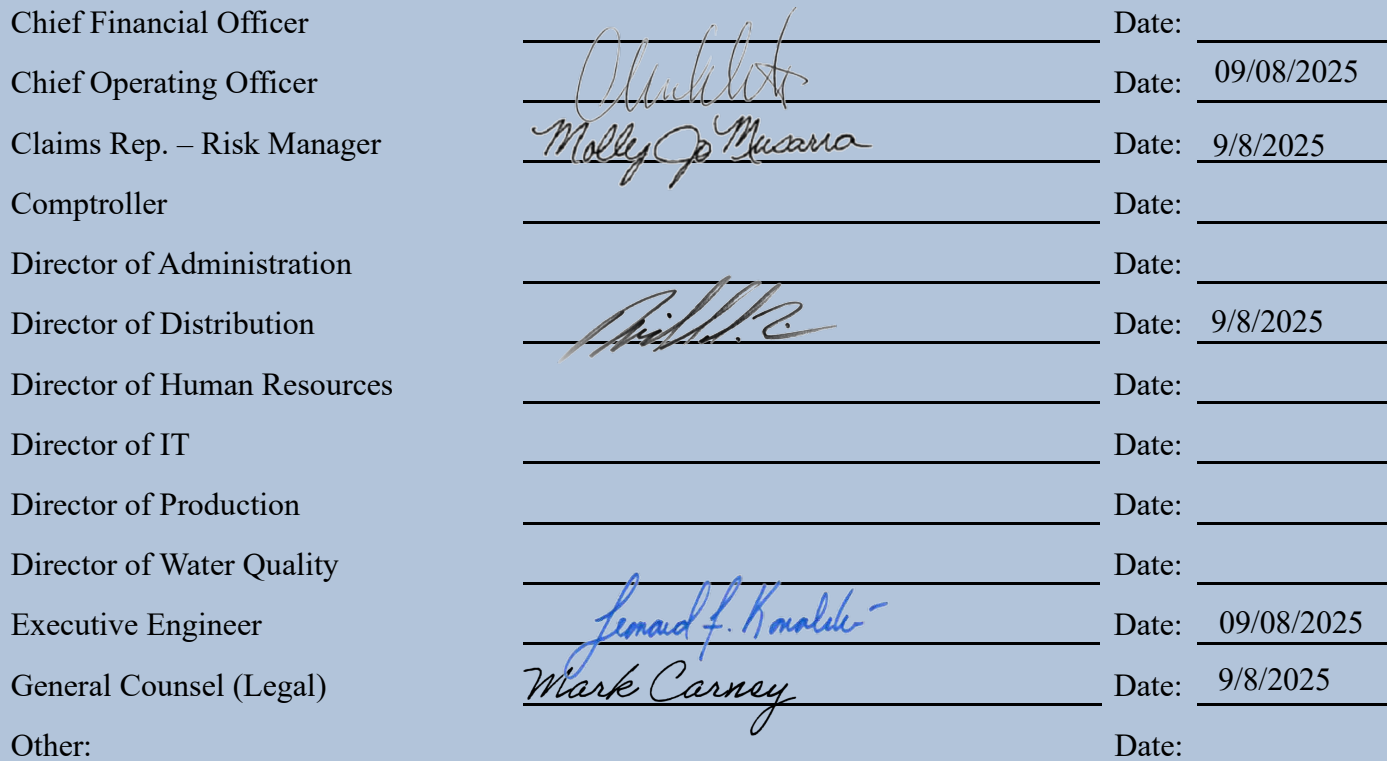 Chief Financial Officer Date:
Chief Operating Officer Date: 09/08/2025
Claims Rep. – Risk Manager Molly Jo Musarra Date: 9/8/2025
Comptroller Date:
Director of Administration Date:
Director of Distribution Date: 9/8/2025
Director of Human Resources Date:
Director of IT Date:
Director of Production Date:
Director of Water Quality Date:
Executive Engineer Leonard F. Kowalski Date: 09/08/2025
General Counsel (Legal) Mark Carney Date: 9/8/2025
Other: Date: